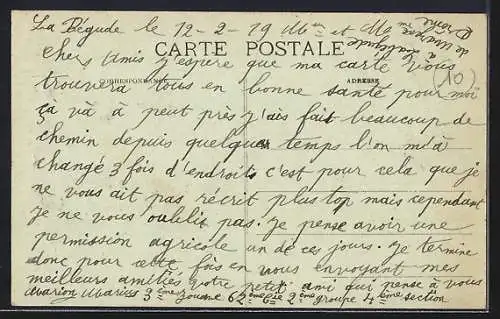 La Bégude le 12-2-19 Mr et Me
à La Bégude
de Mazenc
Drome
CARTE POSTALE
chers Amis j'espere que ma carte vous
CORRESPONDANCE
ADRESSE
10
trouvera tous en bonne santé pour moi
ça và à peut près j'ais fait beaucoup de
chemin depuis quelques temps l'on m'à
changé 3 fois d'endroits c'est pour cela que je
ne vous ait pas récrit plus top mais cependant
je ne vous oublit pas. Je pense avoir une
permission agricole un de ces jours. Je termine
donc pour cette fois en vous envoyant mes
meilleurs amitiés votre petit ami qui pense à vous
Marion Marius 3ème Zouave 6ème Cie 2ème groupe 4ème section